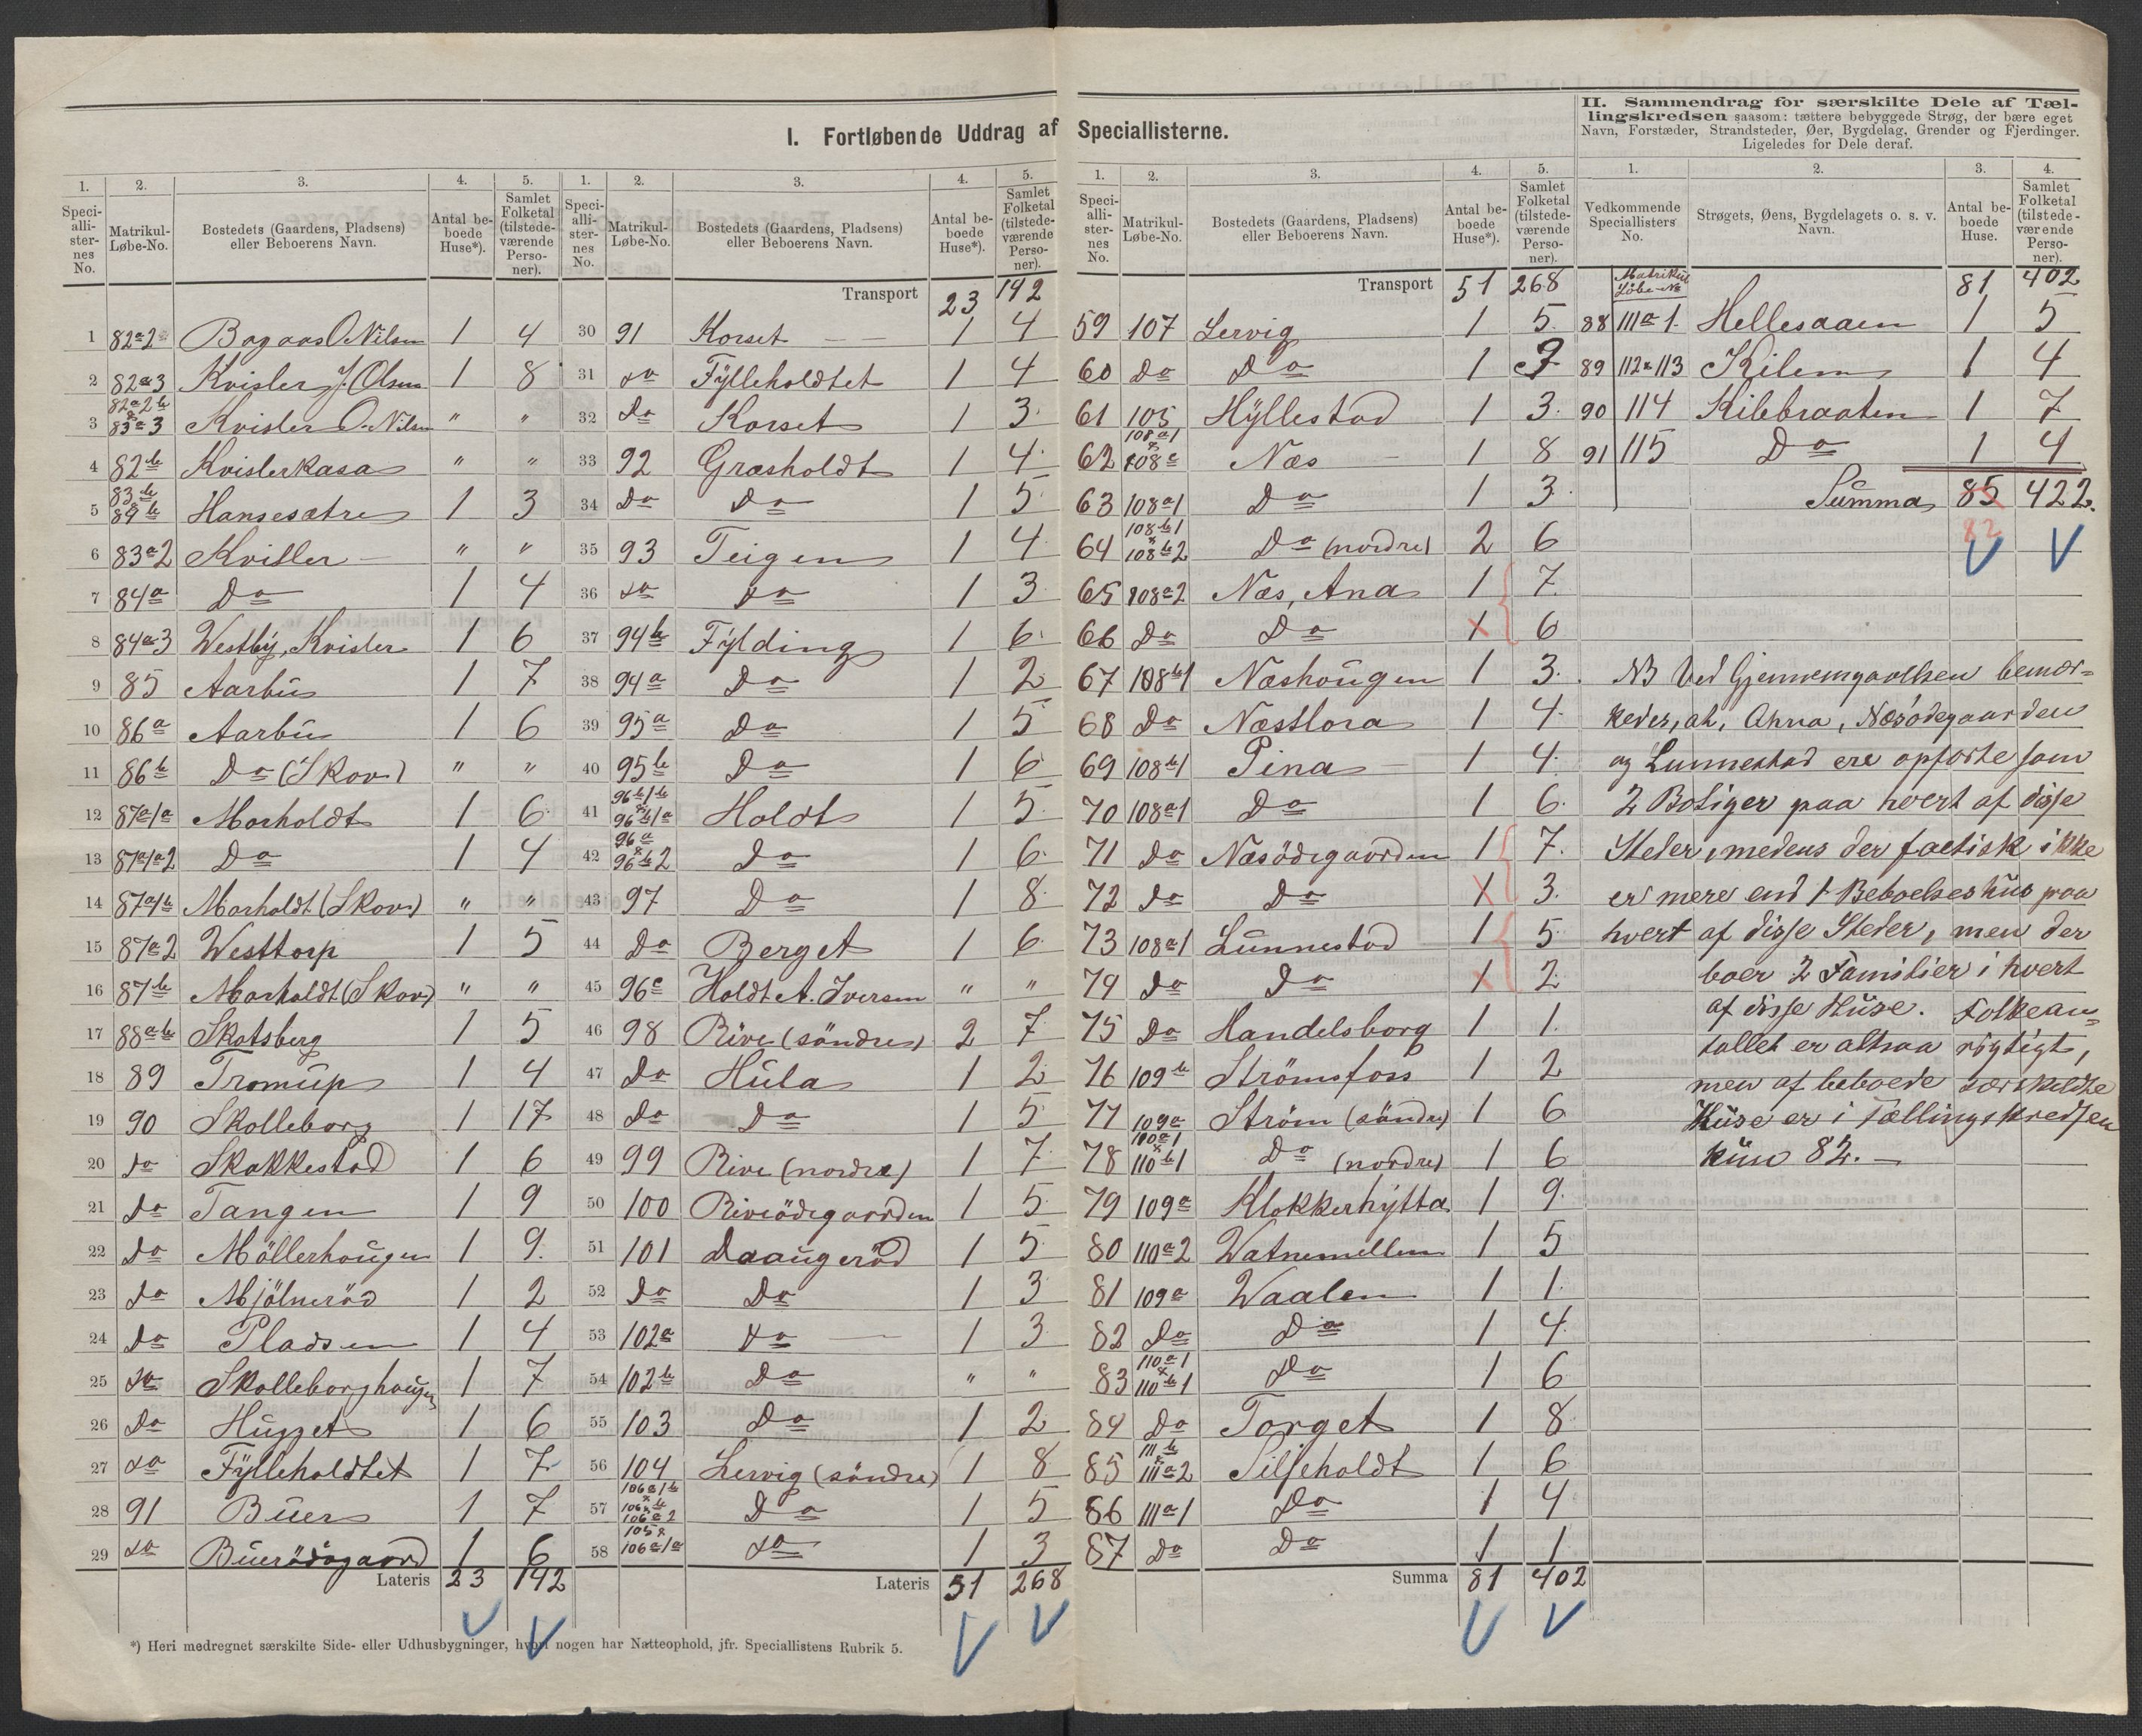 I. Fortløbende Uddrag af Speciallisterne.
II. Sammendrag for særskilte Dele af Tæl-
lingskredsen saasom: tættere bebyggede Strøg, der bære eget
Navn, Forstæder, Strandsteder, Øer, Bygdelag, Grender og Fjerdinger.
Ligeledes for Dele deraf.
1. 2. 3. 4. 5.
Speci-alli-ster-nes No. Matrikul-Løbe-No. Bostedets (Gaardens, Pladsens) eller Beboerens Navn. Antal be-boede Huse*). Samlet Folketal (tilstede-værende Perso-ner).
1 82a2 Bagaas O Nilsen 1 4
2 82a3 Kvisler J. Olsen 1 8
3 82a2b & 83a3 Kvisler O. Nilsen " "
4 82b Kvislerkasa " "
5 83b 89b Hansesætre 1 3
6 83a2 Kvisler " "
7 84a Do 1 4
8 84a3 Westby, Kvisler 1 6
9 85 Aarbu 1 7
10 86a Aarbu 1 6
11 86b Do (Skov) " "
12 87a1a Morholdt 1 6
13 87a1a2 Do 1 4
14 87a1b Morholdt (Skov) " "
15 87a2 Westtorp 1 5
16 87b Morholdt (Skov) " "
17 88ab Skotsberg 1 5
18 89 Tromup 1 4
19 90 Skolleborg 1 17
20 do Skakkestad 1 6
21 do Tangen 1 9
22 do Möllerhougen 1 9.
23 do Mjölneröd 1 2
24 do Pladsen 1 4
25 do Skolleborghougen 1 7
26 Do Hugget 1 6
27 do Fylleholdtet 1 7
28 91 Buer 1 7
29 do Buerödegaard 1 6
Lateris 23 142
*) Heri medregnet særskilte Side- eller Udhusbygninger, hvori nogen har Natteophold, jfr. Speciallistens Rubrik 5.
1. 2. 3. 4. 5.
Speci-alli-ster-nes No. Matrikul-Løbe-No. Bostedets (Gaardens, Pladsens) eller Beboerens Navn. Antal be-boede Huse*). Samlet Folketal (tilstede-værende Perso-ner).
Transport 23 142
30 91 Korset 1 4
31 do Fylleholdtet 1 4
32 Do Korset 1 3
33 92 Græsholdt 1 4
34 Do Do 1 5
35 93 Teigen 1 4
36 do do 1 3
37 94b Fylding 1 6
38 94a Do 1 2
39 95a Do 1 5
40 95b Do 1 6
41 96b1b & 96b1a Holdt 1 5
42 96a & 96b2 Do 1 6
43 97 Do 1 8
44 Do Berget 1 6
45 96c Holdt A. Iversen " "
46 98 Rive (söndre) 2 7
47 Do Hula 1 2
48 Do Do 1 5
49 99 Rive (nordre) 1 7
50 100 Riveödegaarden 1 5
51 101 Daaugeröd 1 5
52 Do Do 1 3
53 102a Do 1 3
54 102b Do " "
55 103 Do 1 2
56 104 Lervig (söndre) 1 8
57 106a1b & 106b 106a2 Do 1 5
58 105 & 106a1a do 1 3
Lateris 51 268
1. 2. 3. 4. 5.
Speci-alli-ster-nes No. Matrikul-Løbe-No. Bostedets (Gaardens, Pladsens) eller Beboerens Navn. Antal be-boede Huse*). Samlet Folketal (tilstede-værende Perso-ner).
Transport 51 268
59 107 Lervig 1 5
60 Do Do 1 9
61 105 Hyllestad 1 3
62 108a1 & 108c Næs 1 8
63 108a1 Do 1 3
64 108b1 & 108b2 Do (nordre) 2 6
65 108a2 Næs, Ana 1 7
66 Do Do 1 6
67 108b1 Næshougen 1 3.
68 Do Næstlora 1 4
69 108b1 Pina 1 4
70 108a1 Do 1 6
71 Do Næsödegaarden 1 7.
72 do Do 1 3.
73 108a1 Lunnestad 1 5
74 do Do 1 2
75 Do Handelsborg 1 1
76 109b Strömsfoss 1 2
77 109a Ström (söndre) 1 6
78 110a1 & 110b1 Do (nordre) 1 6
79 109a Klokkerhytta 1 9
80 110a2 Watnemellem 1 5
81 109a Waalen 1 1
82 Do Do 1 4
83 110a1 & 110b1 Do 1 6
84 Do Torget 1 8
85 111b & 111a2 Silseholdt 1 6
86 111a1 Do 1 4
87 Do Do 1 1
Summa 81 402
1. 2. 3. 4.
Vedkommende Speciallisters No. Strøgets, Øens, Bygdelagets o. s. v. Navn. Antal be-boede Huse. Samlet Folketal (tilstede-værende Perso-ner).
Matrikul Löbe-No 81 402
88 111a1. Hellesaaen 1 5
89 112 & 113 Kilen 1 4
90 114 Kilebraaten 1 7
91 115 Do 1 4
Summa 85 422.
82
NB Ved Gjennemgaaelsen bemær-
kedes, at, Anna, Næsödegaarden
og Lunnestad ere opförte som
2 Boliger paa hvert af disse
Steder, medens der factisk ikke
er mere end 1 Beboelseshus paa
hvert af disse Steder, men der
boer 2 Familier i hvert
af disse Huse. Folkean-
tallet er altsaa rigtigt,
men af beboede særskildte
Huse er i Tællingskredsen
kun 82.